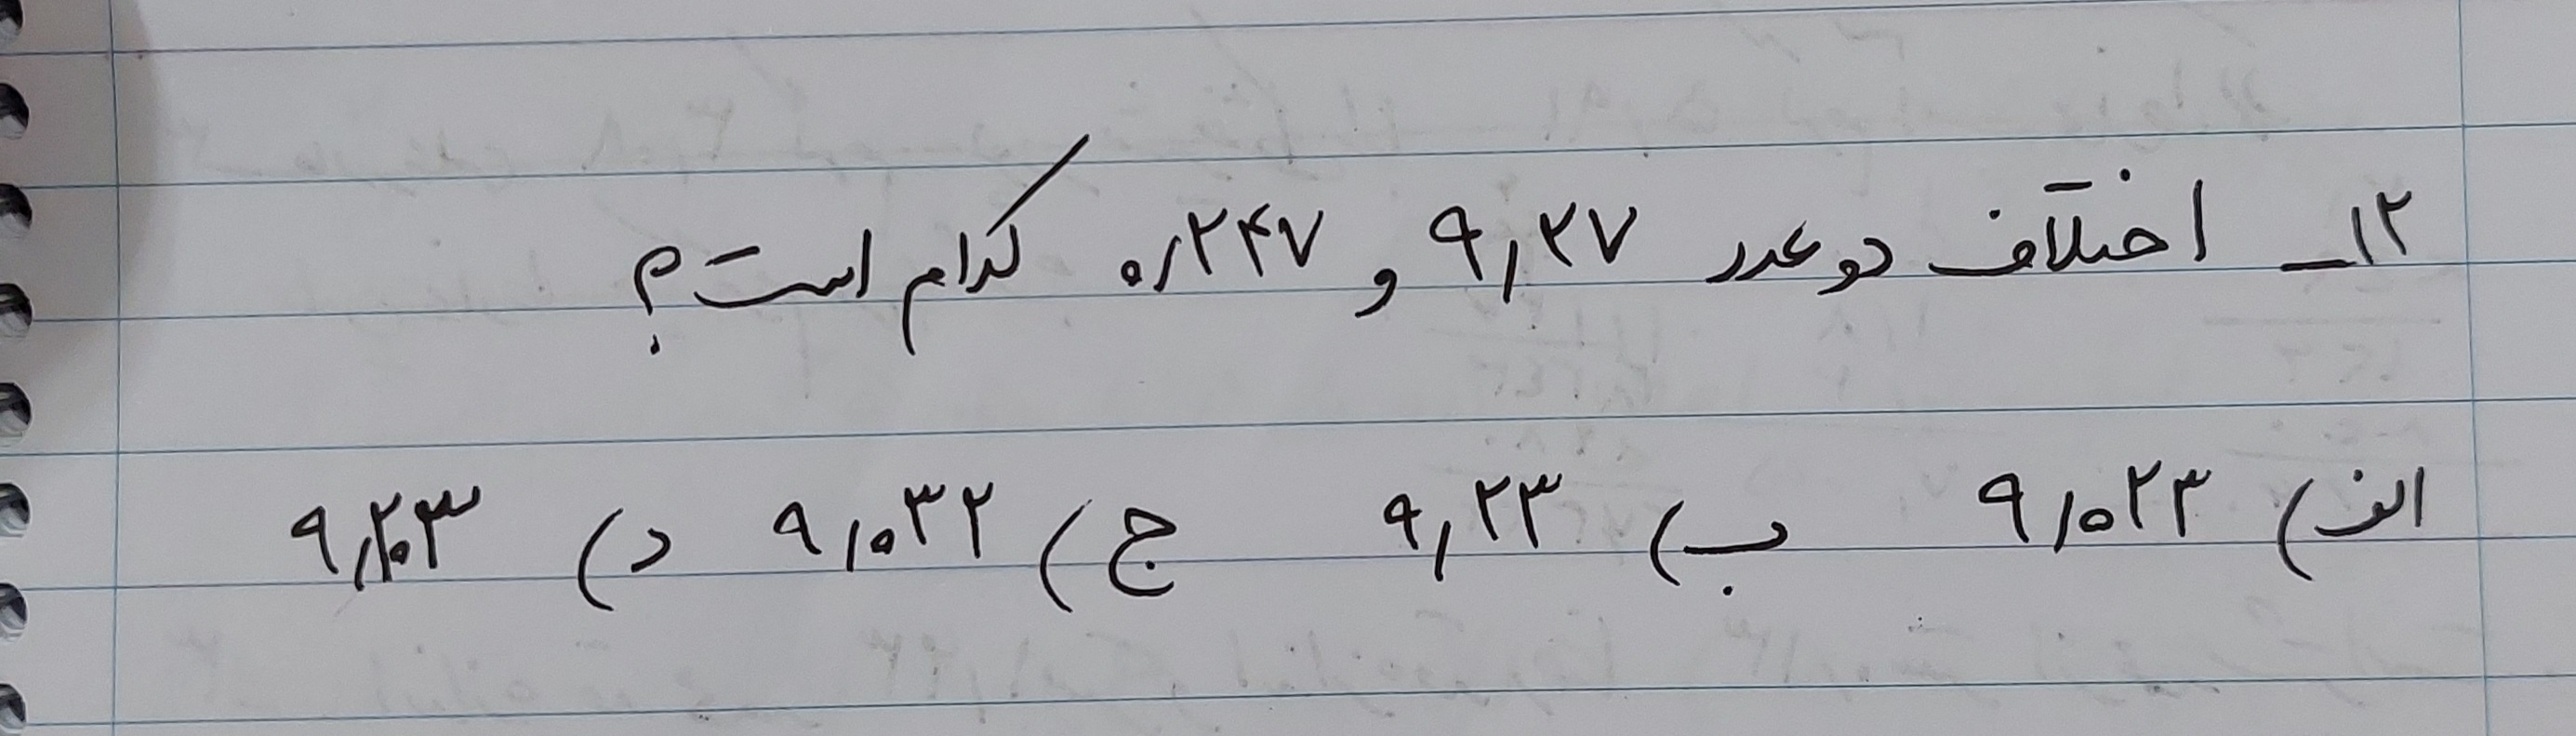 ۱۲_ اختلاف دو عدد ۹٫۲۷ و ۰٫۲۴۷ کدام است؟
الف) ۹٫۰۲۳ ب) ۹٫۲۳ ج) ۹٫۰۳۲ د) ۹٫۲۰۳